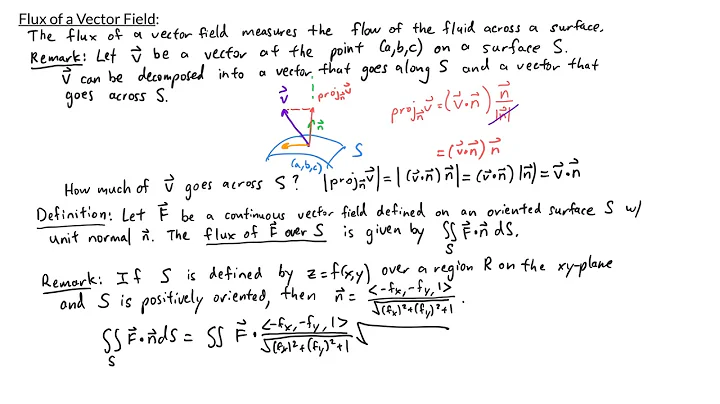 Flux of a Vector Field:
The flux of a vector field measures the flow of the fluid across a surface.
Remark: Let v⃗ be a vector at the point (a,b,c) on a surface S.
v⃗ can be decomposed into a vector that goes along S and a vector that
goes across S.
v⃗ proj_n⃗ v⃗
n⃗
S
(a,b,c)
proj_n⃗ v⃗ = (v⃗·n⃗) n⃗/|n⃗|
= (v⃗·n⃗) n⃗
How much of v⃗ goes across S? |proj_n⃗ v⃗| = |(v⃗·n⃗) n⃗| = (v⃗·n⃗) |n⃗| = v⃗·n⃗
Definition: Let F⃗ be a continuous vector field defined on an oriented surface S w/
unit normal n⃗. The flux of F⃗ over S is given by ∬_S F⃗·n⃗ dS.
Remark: If S is defined by z=f(x,y) over a region R on the xy-plane
and S is positively oriented, then n⃗ = <-f_x, -f_y, 1> / √((f_x)²+(f_y)²+1).
∬_S F⃗·n⃗ dS = ∬ F⃗ · <-f_x, -f_y, 1> / √((f_x)²+(f_y)²+1) √